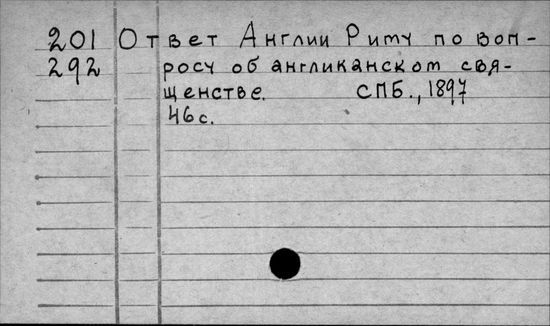 201 Ответ Англии Риму по воп-
292 росу об англиканском свя-
щенстве. СПБ., 1897
46 с.